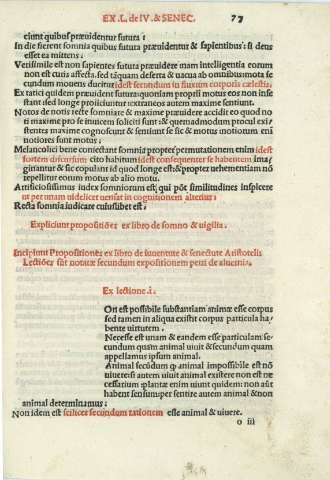 EX .L. de IV. & SENEC. 77
ciunt quibus præuidentur futura :
In die fierent somnia quibus futura præuidentur & sapientibus: si deus
esset ea mittens :
Verisimile est non sapientes futura præuidere nam intelligentia eorum
non est curis affecta. sed tãquam deserta & uacua ab omnibus: mota se
cundum mouens ducitur idest secundum ĩfluxum corporis cælestis :
Ex ratici quidem præuident futura: quoniam propsii motus eos non in
stant sed longe prohiciuntur iextraneos autem maxime sentiunt.
Notos de notis recte somniare & maxime præuidere accidit eo quod no
ti maxime pro se inuicem soliciti sunt: & quemadmodum procul exi
stentes maxime cognoscunt & sentiunt sic & motus notiorum enim
notiores sunt motus :
Melancolici bene coniectant somnia propter permutationem enim idest
fortem discursum cito habitum idest consequenter se habentem ima
ginantur & sic copulant id quod longe est: & propter uehementiam nõ
repellitur eorum motus ab alio motu.
Artificiosissimus iudex somniorum est, qui põt similitudines inspicere
Recta somnia iudicare cuiuslibet est :
Expliciunt propositiões ex libro de somno & uigilia.
Incipiunt Propositiones ex libro de iuuentute & senectute Aristotelis
secundum expositionem petri de aluernia.
Ex lectione .i.
On est possibile substantiam animæ esse corpus
sed tamen in aliqua existit corpus particula ha
bente uirtutem.
Necesse est unam & eandem esse particulam se
cundum quam animal uiuit & secundum quam
appellamus ipsum animal.
Animal secundum ꝙ animal impossibile est nõ
uiuere: si autem uiuit animal existere non est ne
cessarium: plantæ enim uiunt quidem: non aũt
habent sensum: per sentire autem animal & non
animal determinamus :
Non idem est scilicet secundum rationem esse animal & uiuere.
o iii